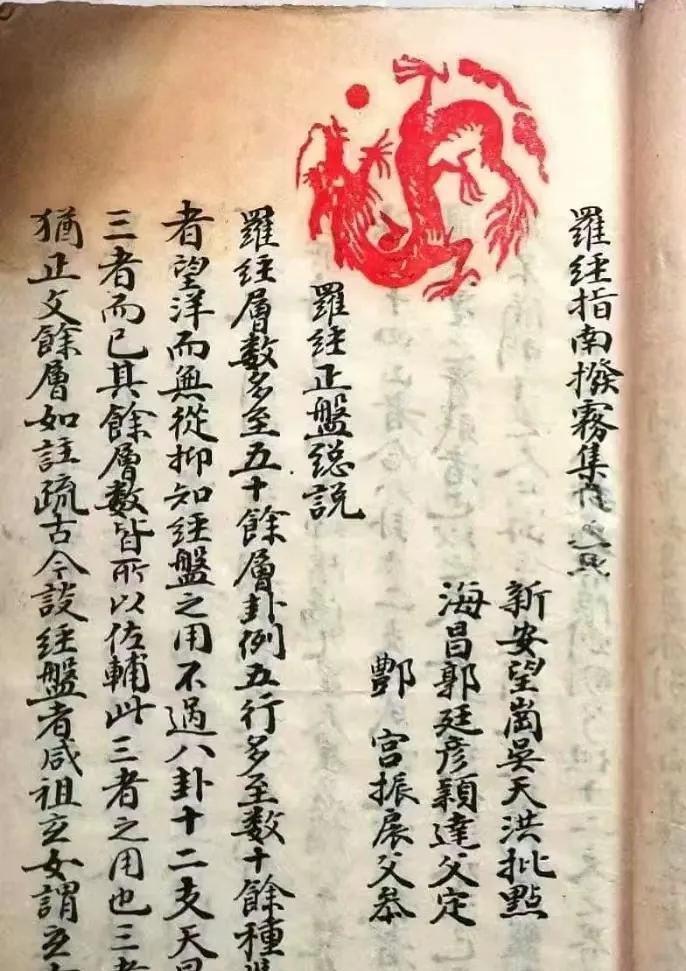 羅經指南撥霧集
新安望崗吳天洪批點
海昌郭廷彥穎達父定
酆 宮振展父叅
羅經正盤總說
羅經層數多至五十餘層卦例五行多至數十餘種
者望洋而無從抑知經盤之用不過八卦十二支天
三者而已其餘層數皆所以佐輔此三者之用也三者
猶正文餘層如註疏古今談經盤者咸祖玄女謂玄女